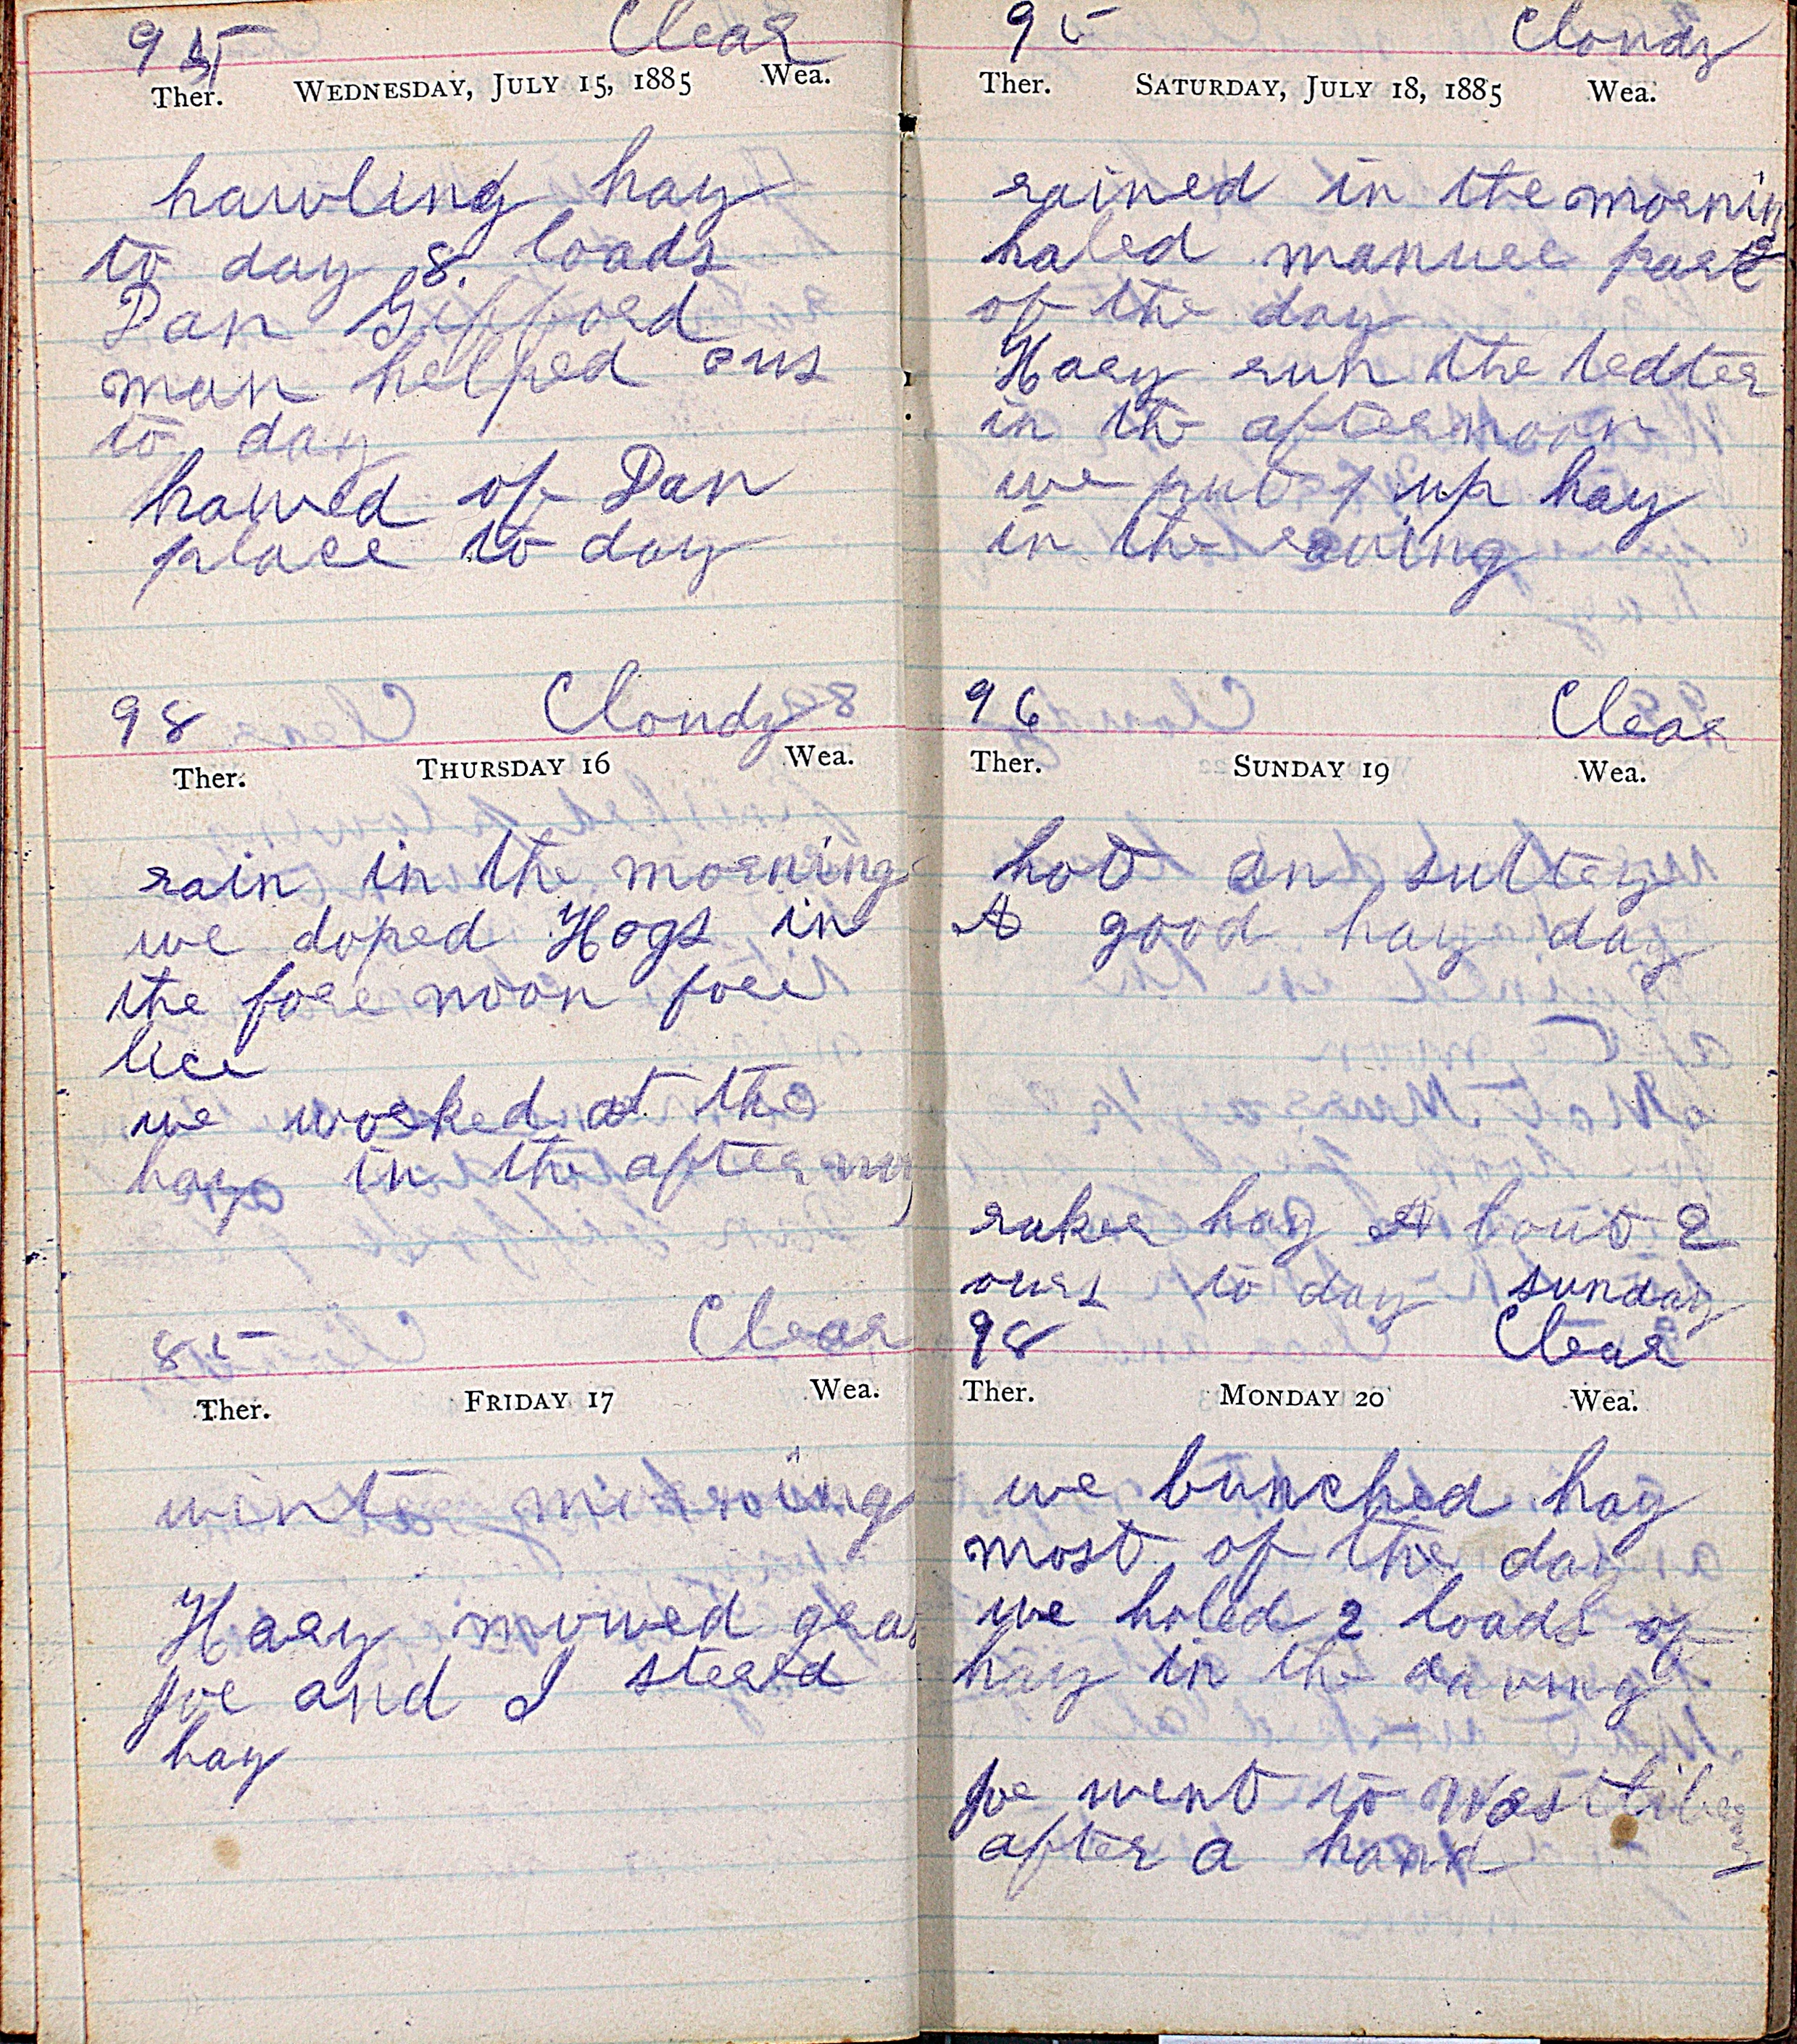 95 Clear
Ther. WEDNESDAY, JULY 15, 1885 Wea.
hawling hay
to day 8 loads
Dan Gifford
man helped ous
to day
hawed of Dan
place to day
98 Cloudy
Ther. THURSDAY 16 Wea.
rain in the morning
we doped Hogs in
the fore noon foer
lice
we worked at the
hay in the after
85 Clear
Ther. FRIDAY 17 Wea.
Hary mowed gras
Joe and I
hay
95 Cloudy
Ther. SATURDAY, JULY 18, 1885 Wea.
rained in the morning
haled manuer part
of the day
Hary run the tedter
in the afternoon
we put up hay
in the eaving
96 Clear
Ther. SUNDAY 19 Wea.
hot an sultery
A good hay day
raker hay A bout 2
ours to day sunday
98 Clear
Ther. MONDAY 20 Wea.
we bunched hay
most of the day
we holed 2 loads of
hay in the eaving
Joe went to
after a hand